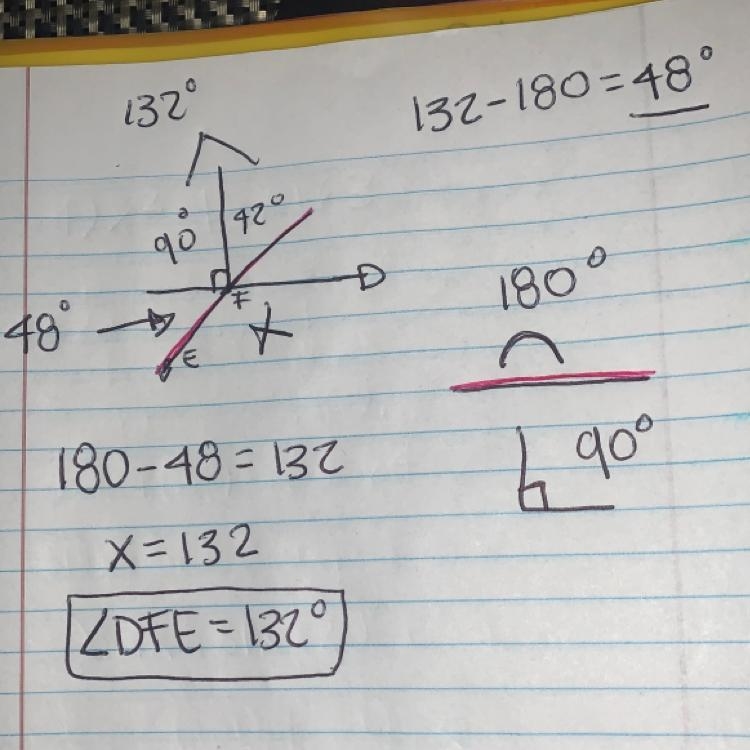 132°
132-180=48°
90°
42°
F
D
48°
E
X
180°
180-48=132
90°
X=132
∠DFE=132°